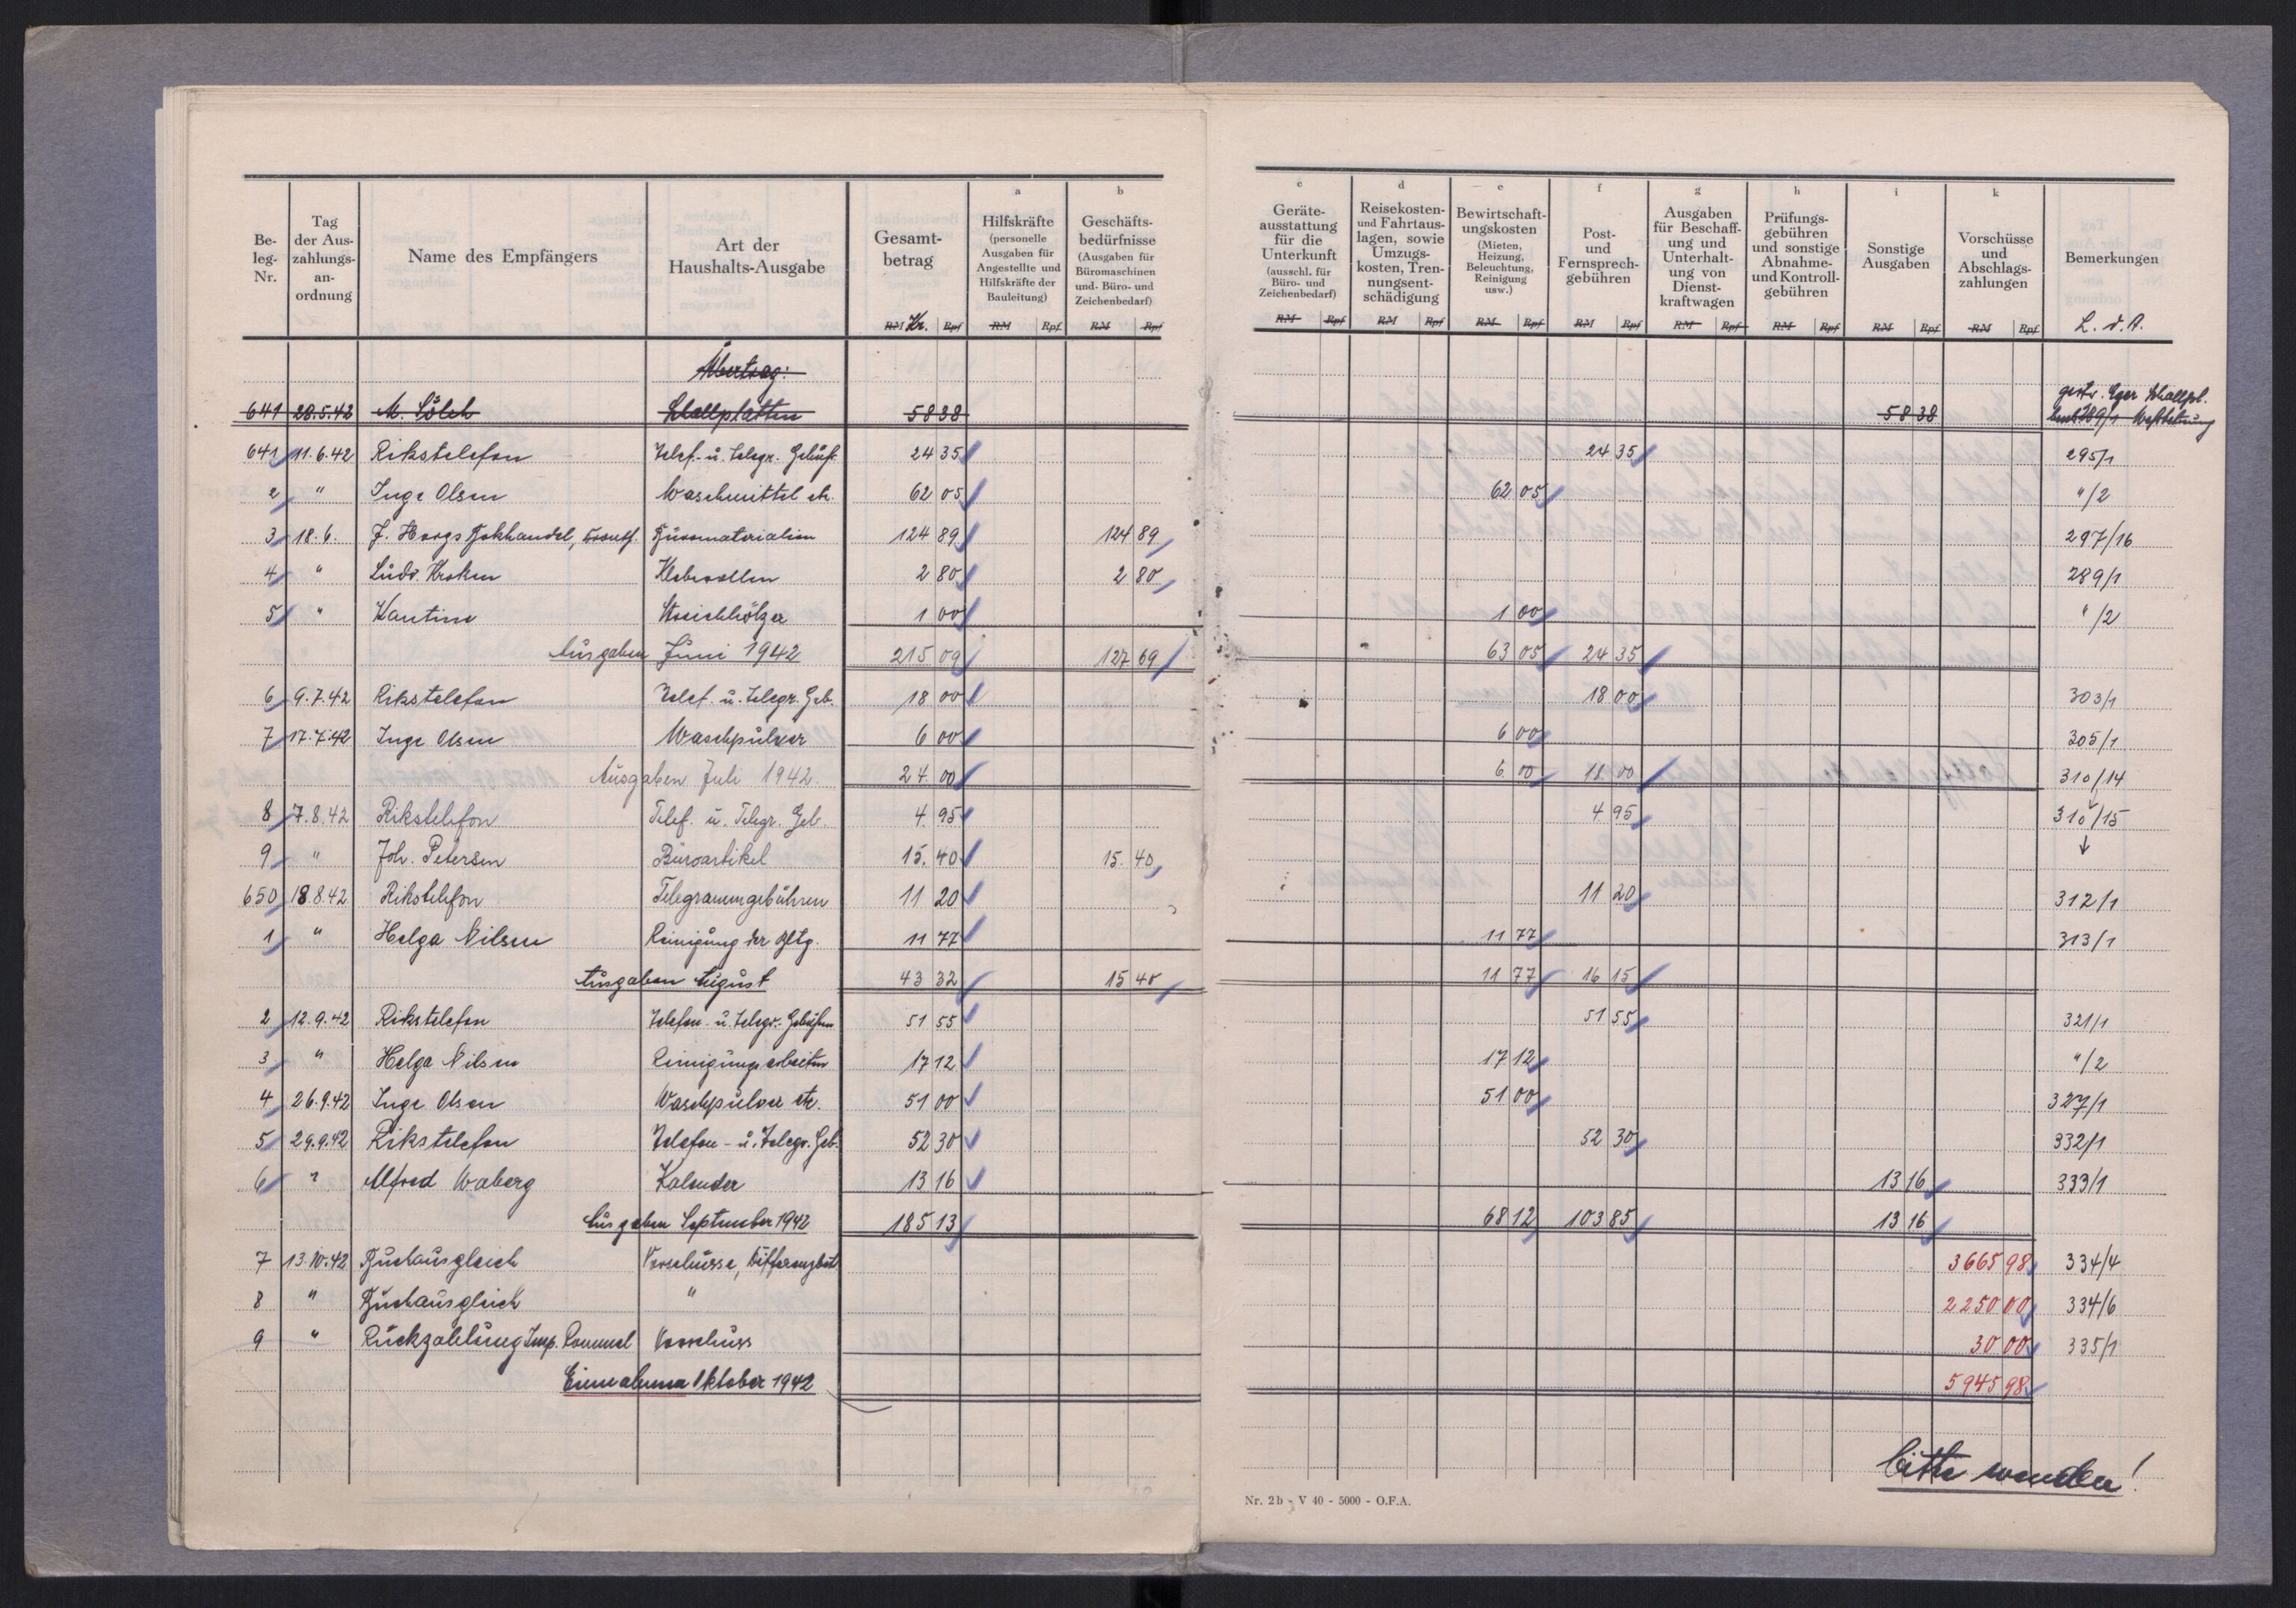 Be-
leg-
Nr.
Tag
der Aus-
zahlungs-
an-
ordnung
Name des Empfängers
Art der
Haushalts-Ausgabe
Gesamt-
betrag
RM Kr. Rpf
a
Hilfskräfte
(personelle
Ausgaben für
Angestellte und
Hilfskräfte der
Bauleitung)
RM Rpf
b
Geschäfts-
bedürfnisse
(Ausgaben für
Büromaschinen
und- Büro- und
Zeichenbedarf)
RM Rpf
c
Geräte-
ausstattung
für die
Unterkunft
(ausschl. für
Büro- und
Zeichenbedarf)
RM Rpf
d
Reisekosten-
und Fahrtaus-
lagen, sowie
Umzugs-
kosten, Tren-
nungsent-
schädigung
RM Rpf
e
Bewirtschaft-
ungskosten
(Mieten,
Heizung,
Beleuchtung,
Reinigung
usw.)
RM Rpf
f
Post-
und
Fernsprech-
gebühren
RM Rpf
g
Ausgaben
für Beschaff-
ung und
Unterhalt-
ung von
Dienst-
kraftwagen
RM Rpf
h
Prüfungs-
gebühren
und sonstige
Abnahme-
und Kontroll-
gebühren
RM Rpf
i
Sonstige
Ausgaben
RM Rpf
k
Vorschüsse
und
Abschlags-
zahlungen
RM Rpf
Bemerkungen
L. d. A.
Übertrag:
641 28.5.42 M. Sölch Schallplatten 58 38 58 38
641 11.6.42 Rikstelefon Telef.- u. Telegr. Gebühr 24 35 24 35 295/1
2 " Inge Olsen Waschmittel etc. 62 05 62 05 "/2
3 18.6. J. Haugs Bokhandel, Büromaterialien 124 89 124 89 297/16
4 " Ludv. Kroken Kleberollen 2 80 2 80 289/1
5 " Kantine Streichhölzer 1 00 1 00 "/2
Ausgaben Juni 1942 215 09 127 69 63 05 24 35
6 9.7.42 Rikstelefon Telef. u. Telegr. Geb. 18 00 18 00 303/1
7 17.7.42 Inge Olsen Waschpulver 6 00 6 00 305/1
Ausgaben Juli 1942. 24. 00 6. 00 18 00 310/14
8 7.8.42 Rikstelefon Telef. u. Telegr. Geb. 4. 95 4 95 310/15
9 " Joh. Petersen Büroartikel 15. 40 15. 40
650 18.8.42 Rikstelefon Telegrammgebühren 11 20 11 20 312/1
1 " Helga Nilsen Reinigung der Bltg. 11 77 11 77 313/1
Ausgaben August 43 32 15 40 11 77 16 15
2 12.9.42 Rikstelefon Telefon- u. Telegr. Gebühren 51 55 51 55 321/1
3 " Helga Nilsen Reinigungsarbeiten 17 12 17 12 "/2
4 26.9.42 Inge Olsen Waschpulver etc. 51 00 51 00 327/1
5 29.9.42 Rikstelefon Telefon- u. Telegr. Geb. 52 30 52 30 332/1
6 " Alfred Waberg Kalender 13 16 13 16 333/1
Ausgaben September 1942 185 13 68 12 103 85 13 16
7 13.10.42 Buchausgleich Vorschüsse, 3665 98 334/4
8 " Buchausgleich " 2250 00 334/6
9 " Rückzahlung Insp. Rommel Vorschuss 30 00 335/1
Einnahmen Oktober 1942 5945 98
bitte wenden!
Nr. 2b - V 40 - 5000 - O.F.A.